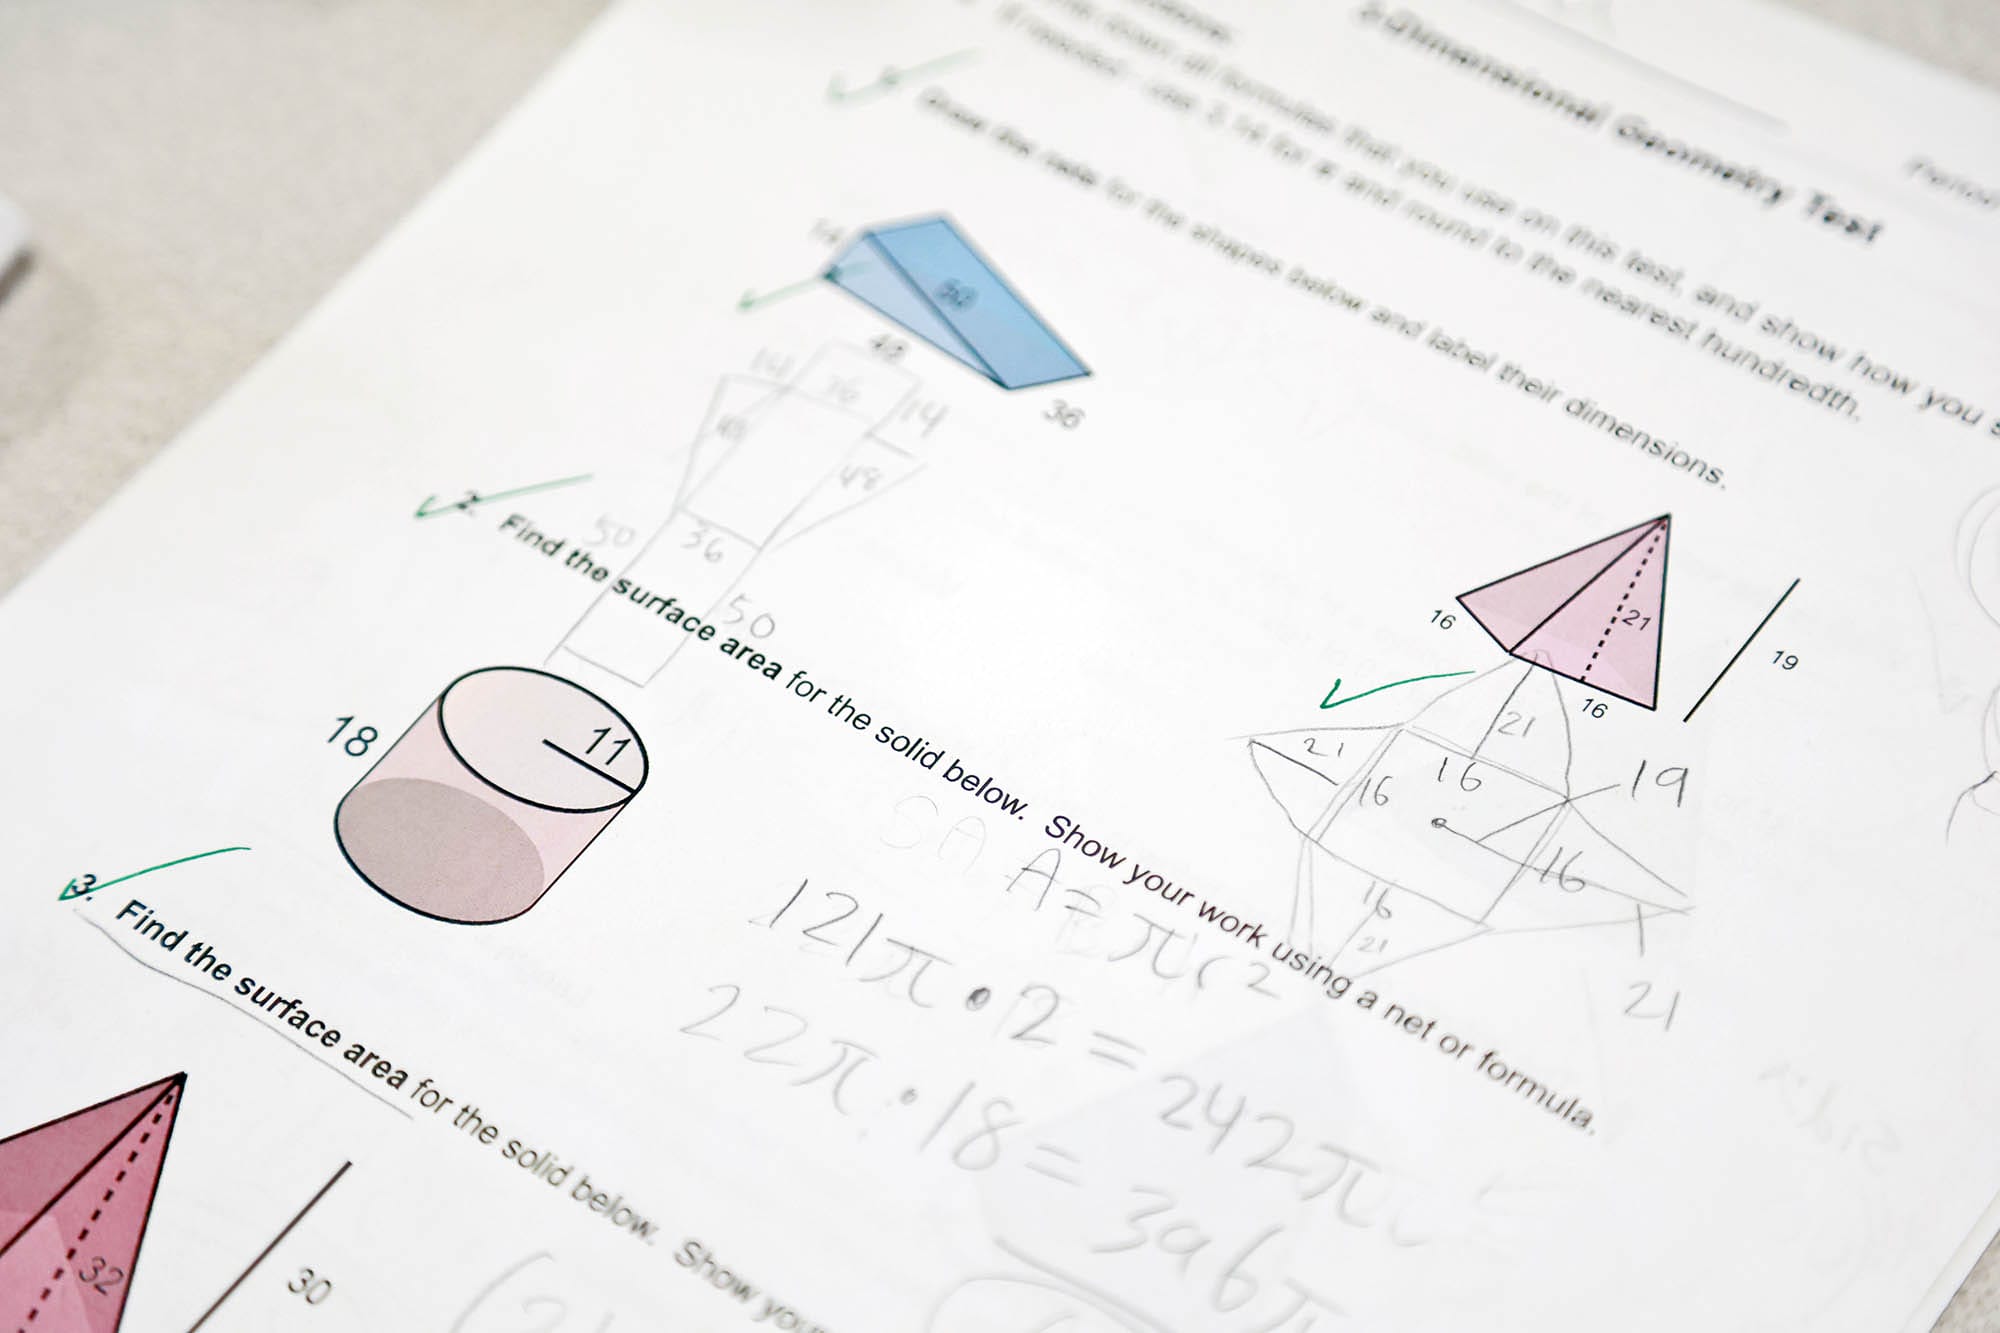 3-Dimensional Geometry Test
Period
all formulas that you use on this test, and show how you s
If needed, use 3.14 for π and round to the nearest hundredth.
Draw the nets for the shapes below and label their dimensions.
14
50
48
36
36
14
48
50
36
50
21
16
16
19
21
21
16
16
19
16
16
21
21
2. Find the surface area for the solid below. Show your work using a net or formula.
18
11
SA
A = π
121π • 2 = 242π
22π • 18 = 396π
3. Find the surface area for the solid below. Show your
32
30